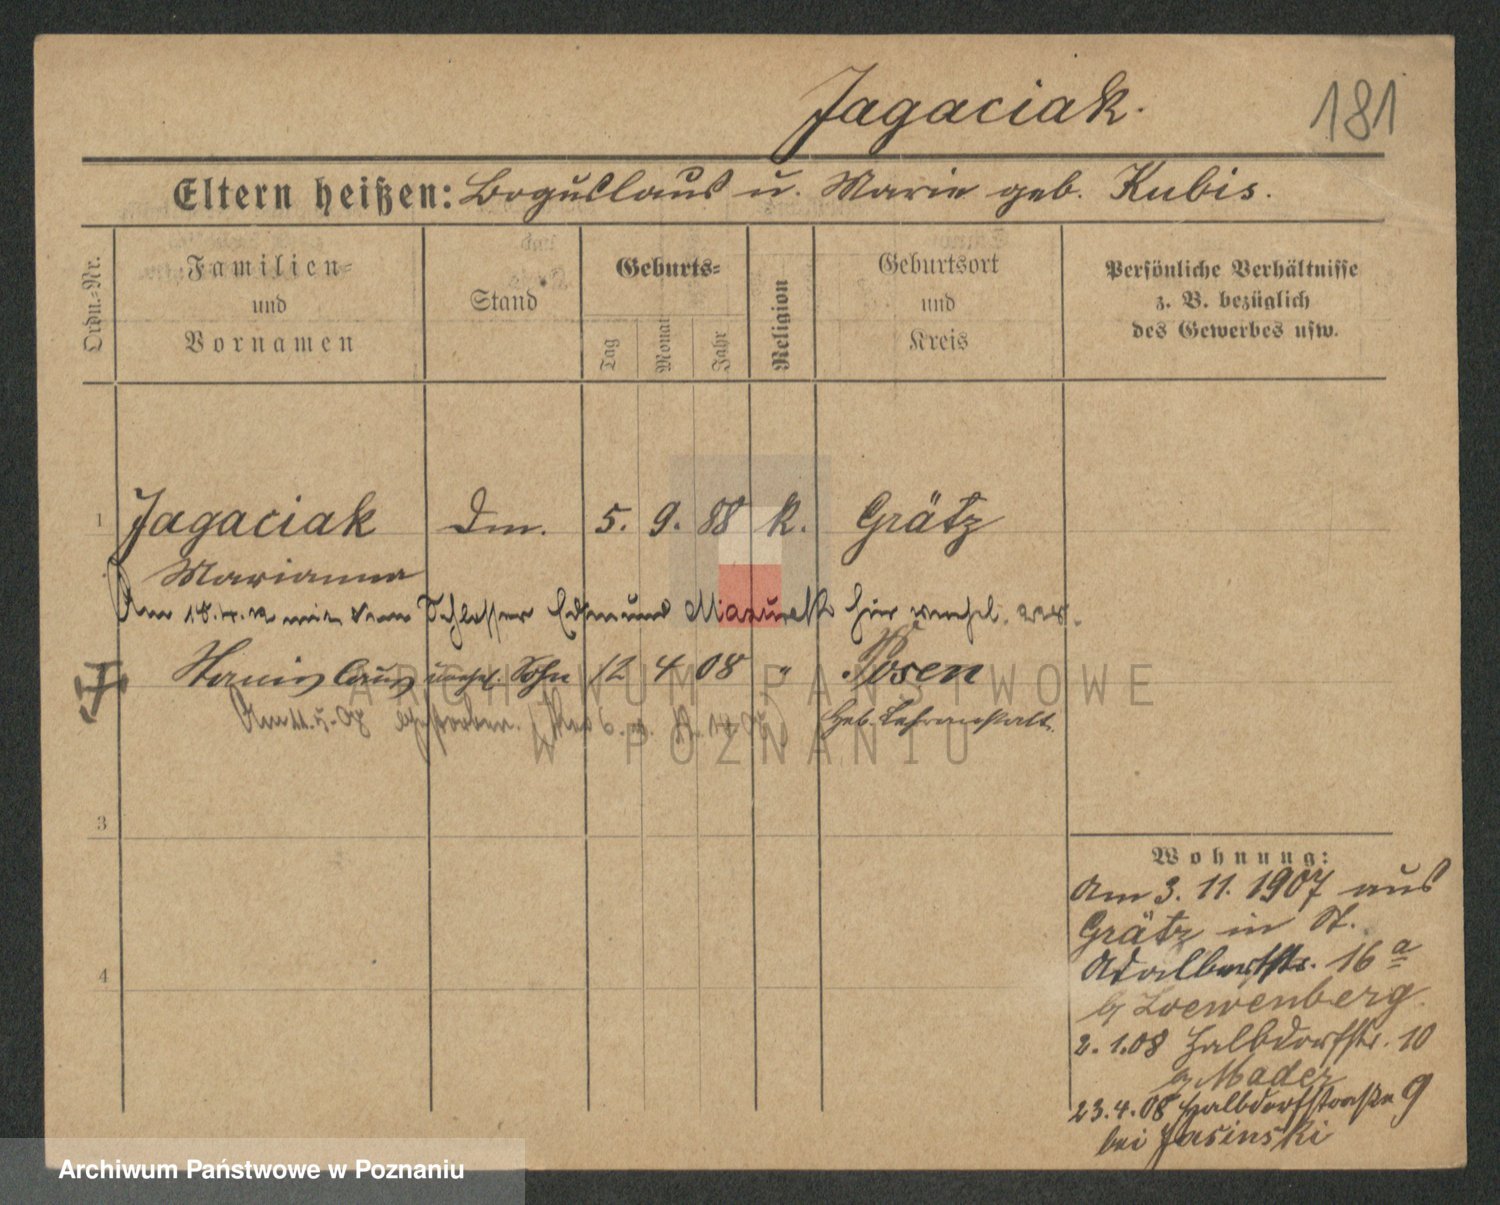 Jagaciak.
181
Eltern heißen: Boguslaus u. Marie geb. Kubis.
Ordn.-Nr.
Familien-
und
Vornamen
Stand
Geburts-
Tag
Monat
Jahr
Religion
Geburtsort
und
Kreis
Persönliche Verhältnisse
z. B. bezüglich
des Gewerbes usw.
1 Jagaciak Dm. 5. 9. 88 k. Grätz
Marianna
Am 18.4. mit dem Schlosser Edmund Mazurek hier verehel.
Stanislaus unehel. Sohn 12 4 08 " Posen
gestorben Heb. Lehranstalt
3
4
Wohnung:
Am 3. 11. 1907 aus
Grätz in St.
Adalbertstr. 16 a
b/ Loewenberg.
2. 1. 08 Halbdorfstr. 10
b/ Mader
23. 4. 08 Halbdorfstraße 9
bei Jasinski
ARCHIWUM PAŃSTWOWE
W POZNANIU
Archiwum Państwowe w Poznaniu